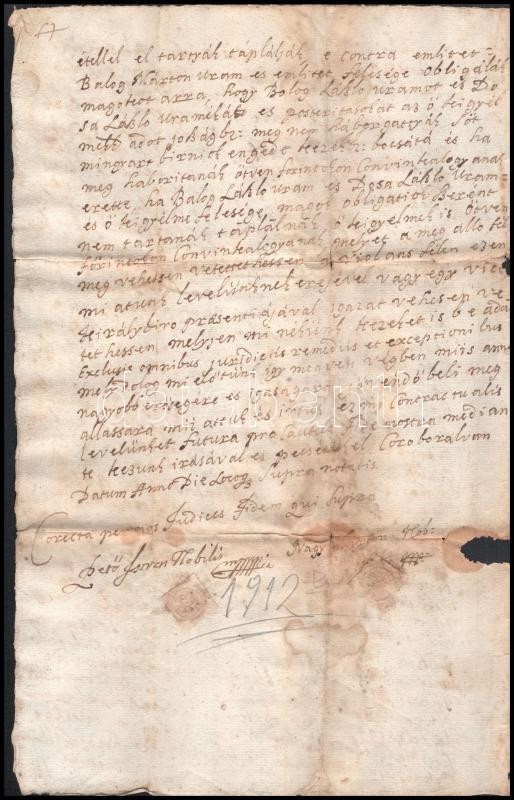 étellel el tartyák taplálják e contra emlitet
Balog Marton Uram es emlitet felesége obligálák
magokot arra, hogy Balog László Uramot es Do
sa László Uramékat es posteritasokat az ő keigyel
mek adot joszágbā: meg nem háborgattyák, sőt
mingyart birniok engedik kezekbe bocsátá es ha
meg haboritanák ötven forintokon Convincalogyanak
erette ha Balog László Uram es Dosa László Uram
es ő keigyelme felesege, magok obligatioi szerént
nem tartanák taplálnák ő keigyelmek is Ötven
forintokon Convincalogyanak, melyet a meg allo fel
meg vehessen vetettethessen a violans félen ezen
mi atunk levelünknek erejével vagy egy vice
Királybiro praesentiájával igazat vehesen ve
tethessen, melyjen mi nékünk kezeket is be adá
Exclusis omnibus juridicis remediis et exceptionibus
mely dolog mi előttünk igy menven végben miis annak
nagyobb erősségére es igasagara jövendőbeli meg
állására mii attuk ezen Contractualis
levelünket futura pro Cautela nostra median
te kezünk irásával es pecsetünkel Coroboralvan
Datum Anno Die Locoq supra notatis
Corecta per nos Judices Fidem qui supra
Pető Istvan Nobilis
Nagy Nob:
1912
darabanth